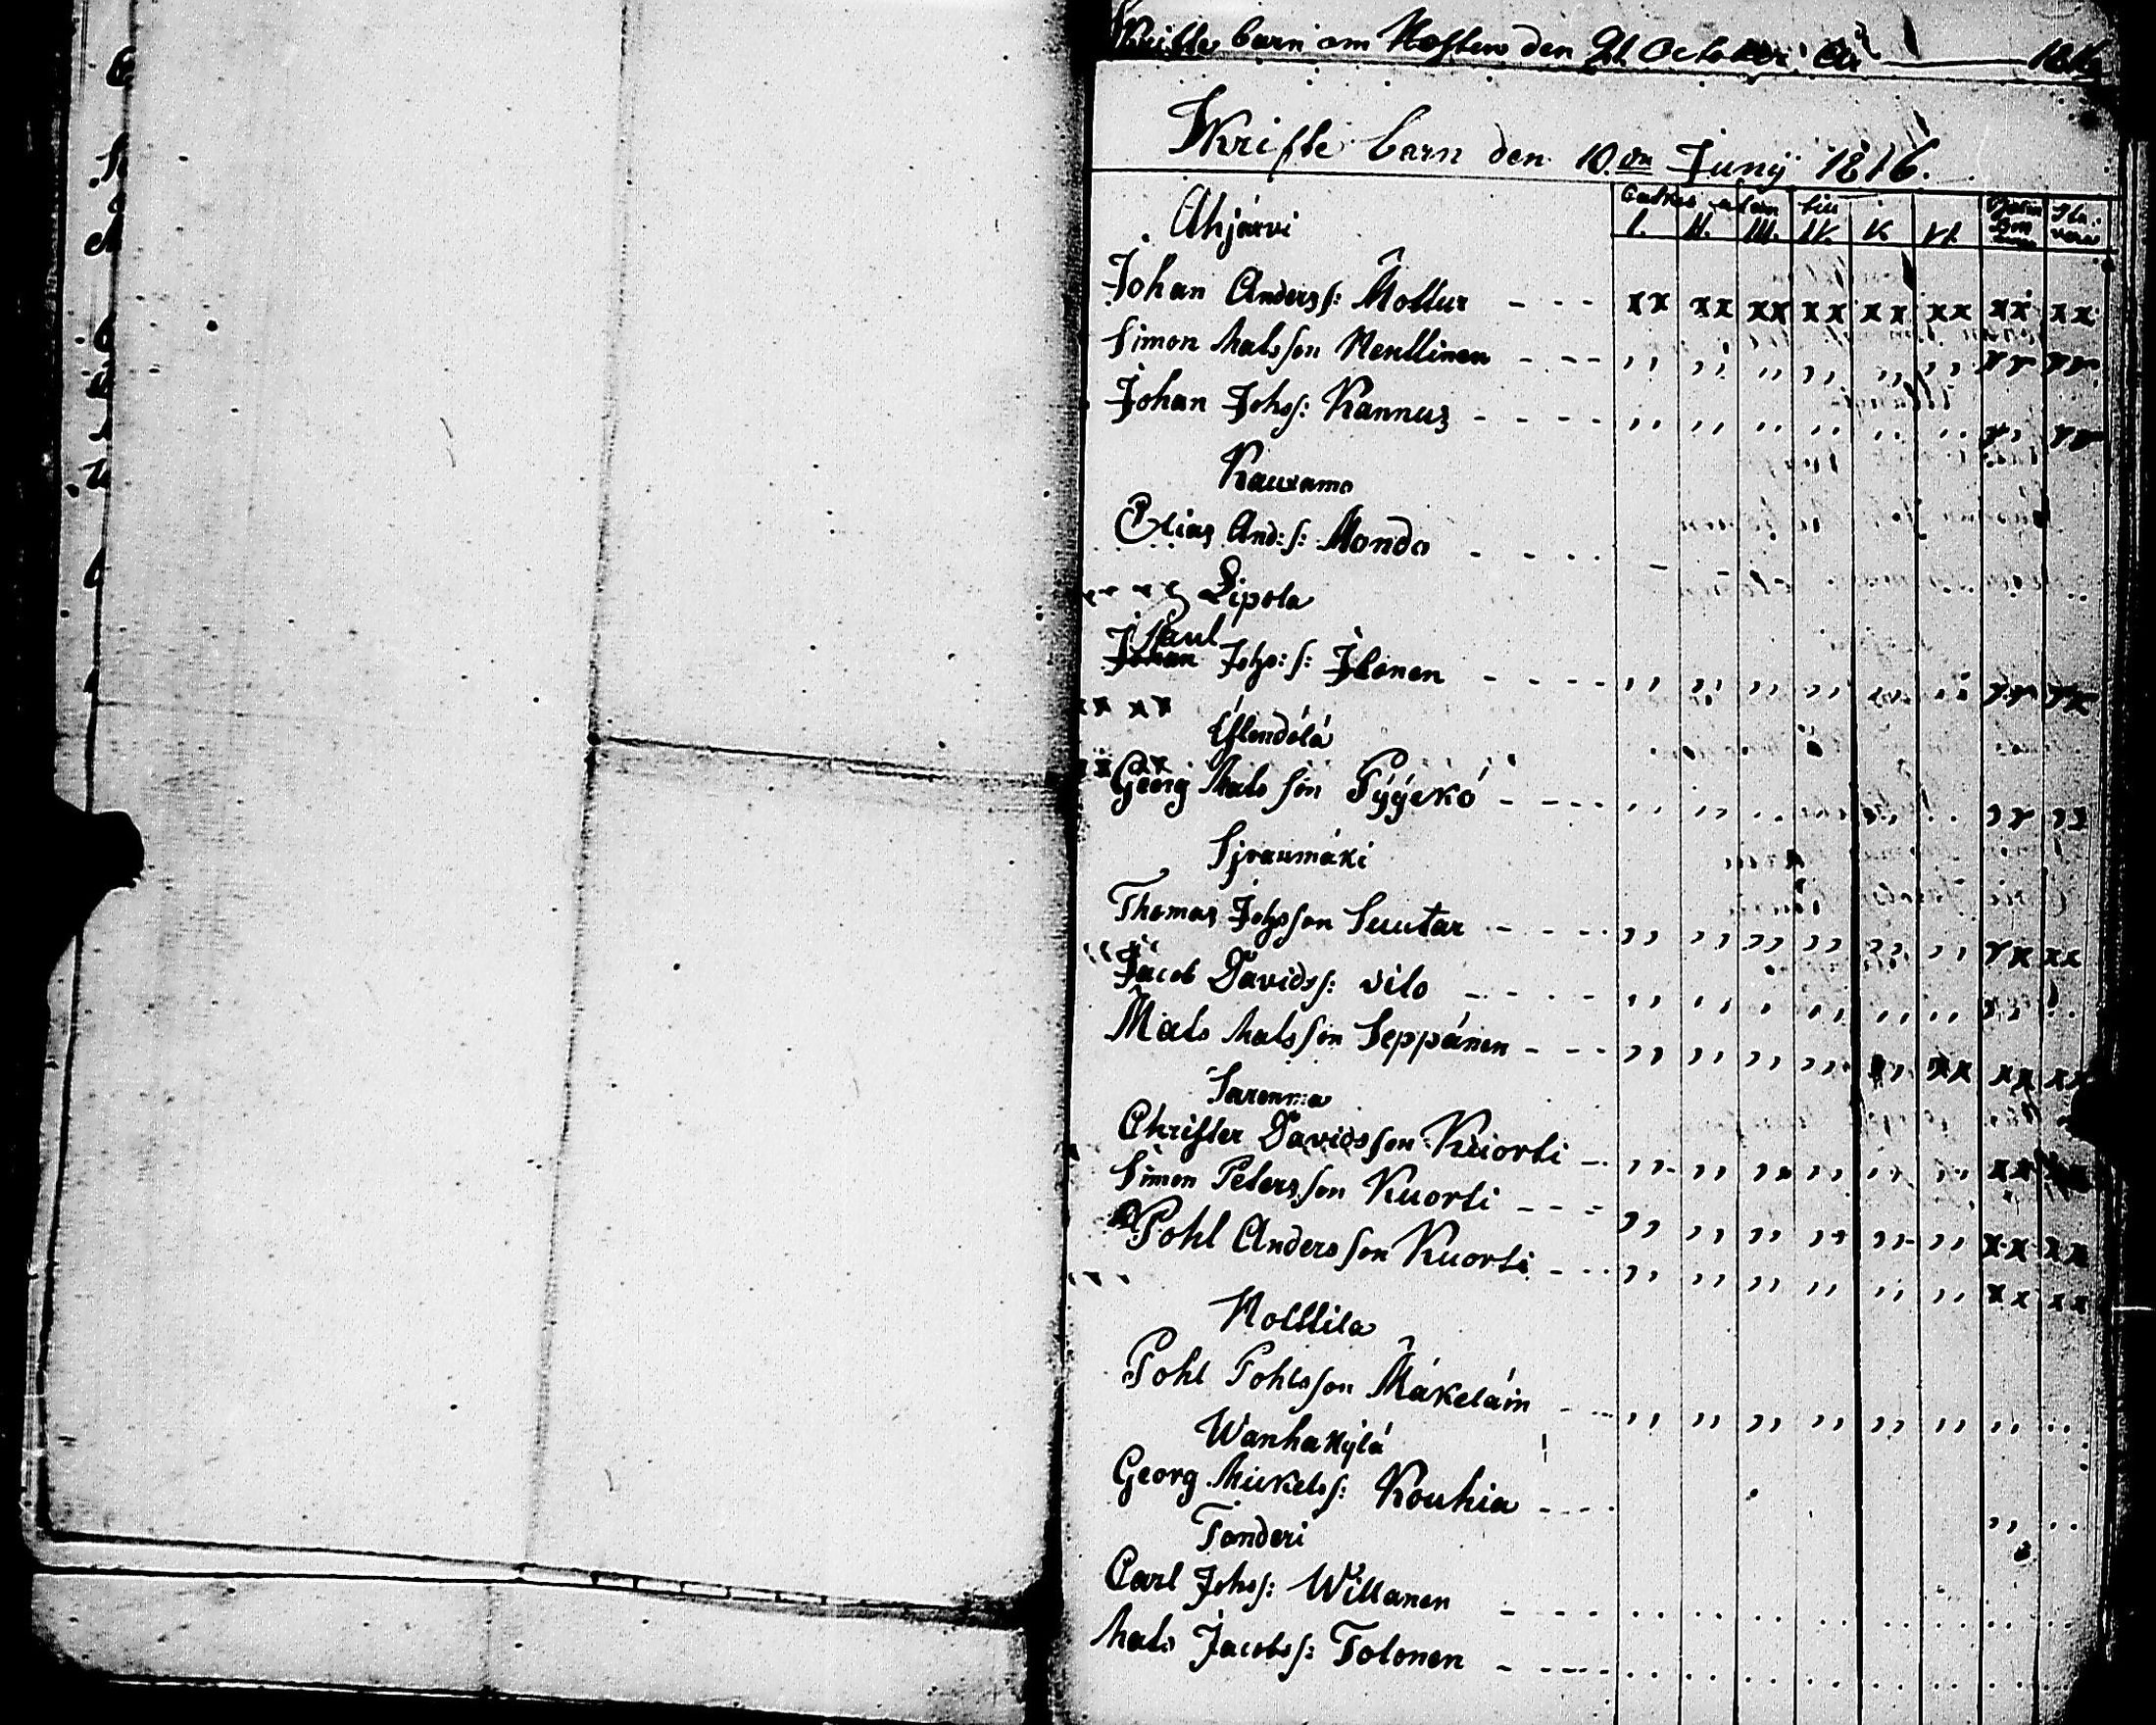 Skrifte barn om Hösten den 21 October
Skrifte barn den 10.de Junij 1816.
Ahjärvi
I. II. III. IV. V. VI.
Johan Anderss: Mottur - - - xx xx xx xx xx xx xx xx
Simon Matsson Henttinen - - - ,, ,, ,, ,, ,, ,,
Johan Johss: Kannus - - - - ,, ,, ,, ,, ,, ,,
Kauxamo
Elias And:s: Mondo - - - -
Lipola
Paul
Johan Joh:s: Ikonen - - - - ,, ,, ,, ,, ,, ,,
xx xx
Georg Matsson Pÿÿckö - - - - ,, ,, ,, ,, ,, ,,
Thomas Johsson Suutar - - - - ,, ,, ,, ,, ,, ,, xx xx
Jacob Davidss: Vilo - - - - ,, ,, ,, ,, ,, ,,
Mats Matsson Seppänen - - - ,, ,, ,, ,, ,, xx xx xx
Sarenma
Christer Davidsson Kuorti - - ,, ,, ,, ,, ,, ,, xx
Simon Petersson Kuorti - - - ,, ,, ,, ,, ,, ,, xx xx
Pohl Andersson Kuorti - - - ,, ,, ,, ,, ,, ,, xx xx
Hottila
Pohl Pohlsson Mäkeläin - - - ,, ,, ,, ,, ,, ,, ,, ,,
Wanhakylä
Georg Mickelss: Kouhia - - - ,, ,,
Tonderi
Carl Johss: Willanen - - - -
Mats Jacobss: Tolonen - - - -